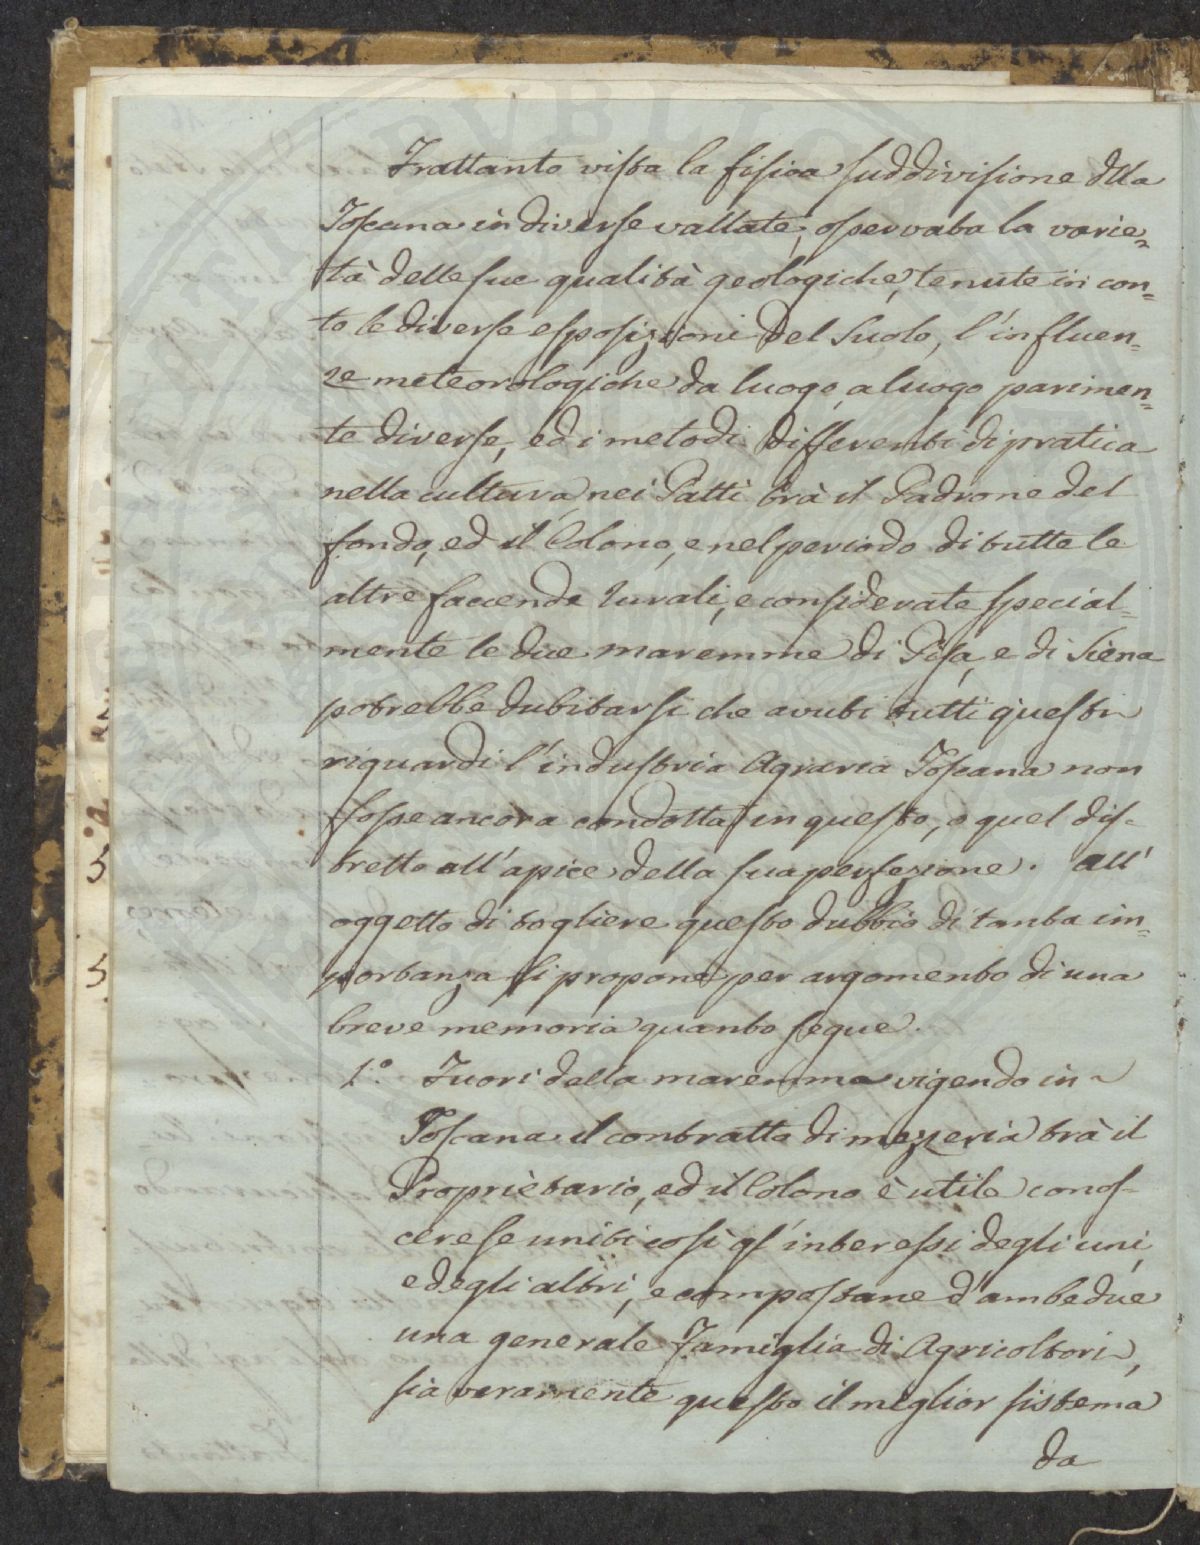 Trattanto vista la fisica suddivisione della
Toscana in diverse vallate, osservata la varie=
tà delle sue qualità geologiche, tenute in con=
to le diverse esposizioni del Suolo, l'influen=
ze meteorologiche da luogo, a luogo parimen=
te diverse, ed i metodi differenti di pratica
nella cultura, nei Patti trà il Padrone del
fondo, ed il Colono, e nel periodo di tutte le
altre faccende rurali, e considerate special=
mente le due maremme di Pisa, e di Siena
potrebbe dubitarsi che avuti tutti questi
riguardi l'industria Agraria Toscana non
fosse ancora condotta in questo, o quel dis=
tretto all'apice della sua perfezione. All'
oggetto di togliere questo dubbio di tanta im=
portanza si propone per argomento di una
breve memoria quanto segue.
1.° Fuori della maremma vigendo in
Toscana il contratto di mezzeria trà il
Proprietario, ed il Colono è utile conos=
cere se uniti così gl'interessi degli uni,
e degli altri, e compostane d'ambedue
una generale Famiglia di Agricoltori,
sia veramente questo il miglior sistema
da